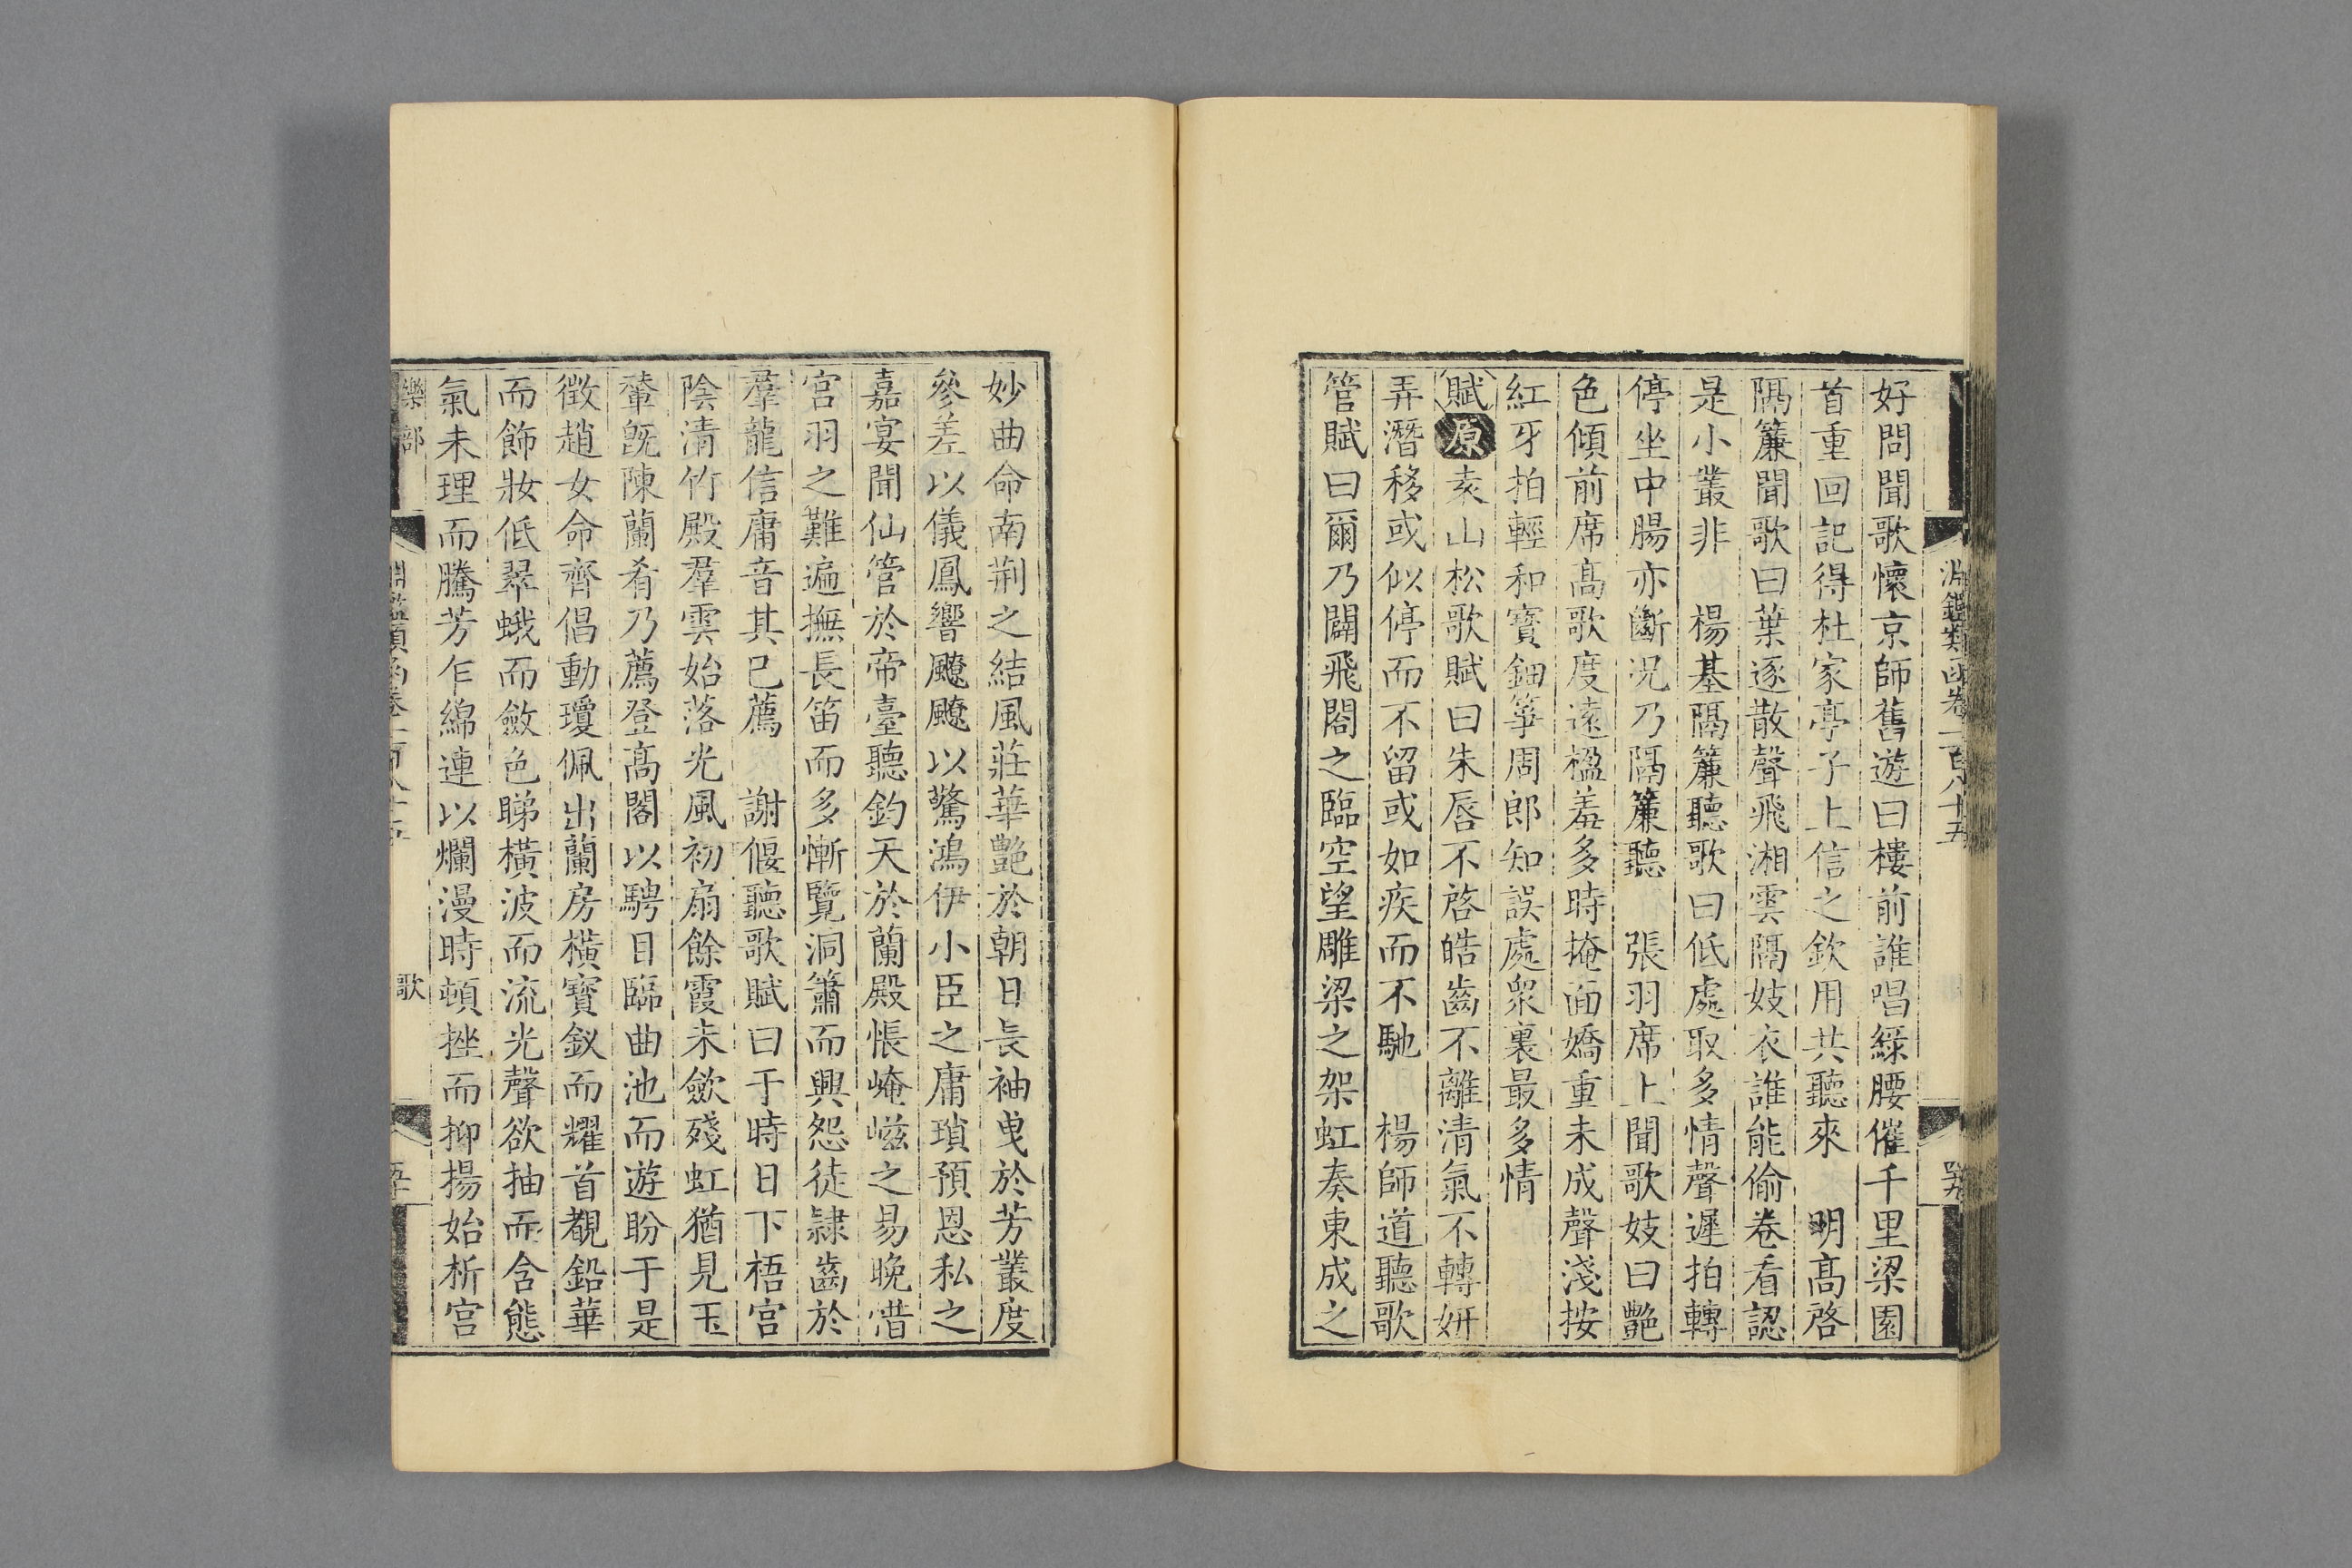 淵鑑類函卷一百八十五
好問聞歌懷京師舊遊曰樓前誰唱綠腰催千里梁園
首重回記得杜家亭子上信之欽用共聽來　明高啓
隔簾聞歌曰葉逐散聲飛湘雲隔妓衣誰能偷卷看認
是小叢非　楊基隔簾聽歌曰低處取多情聲遲拍轉
停坐中腸亦斷況乃隔簾聽　張羽席上聞歌妓曰艷
色傾前席高歌度遠楹羞多時掩面嬌重未成聲淺按
紅牙拍輕和寶鈿箏周郎知誤處衆裏最多情
賦原袁山松歌賦曰朱唇不啓皓齒不離清氣不轉妍
弄潛移或似停而不留或如疾而不馳　楊師道聽歌
管賦曰爾乃闢飛閣之臨空望雕梁之架虹奏東成之
妙曲命南荆之結風莊華艷於朝日長袖曵於芳叢度
參差以儀鳳響飂飂以驚鴻伊小臣之庸瑣預恩私之
嘉宴聞仙管於帝臺聽鈞天於蘭殿悵崦嵫之易晚惜
宫羽之難遍撫長笛而多慚覽洞簫而興怨徒隷齒於
羣龍信庸音其已薦　謝偃聽歌賦曰于時日下梧宫
陰清竹殿羣雲始落光風初扇餘霞未歛殘虹猶見玉
輦旣陳蘭肴乃薦登高閣以騁目臨曲池而遊盼于是
徴趙女命齊倡動瓊佩出蘭房橫寶釵而耀首靚鉛華
而飾妝低翠蛾而斂色睇橫波而流光聲欲抽而含態
氣未理而騰芳乍綿連以爛漫時頓挫而抑揚始析宫
樂部
淵鑑類函卷一百八十五
歌